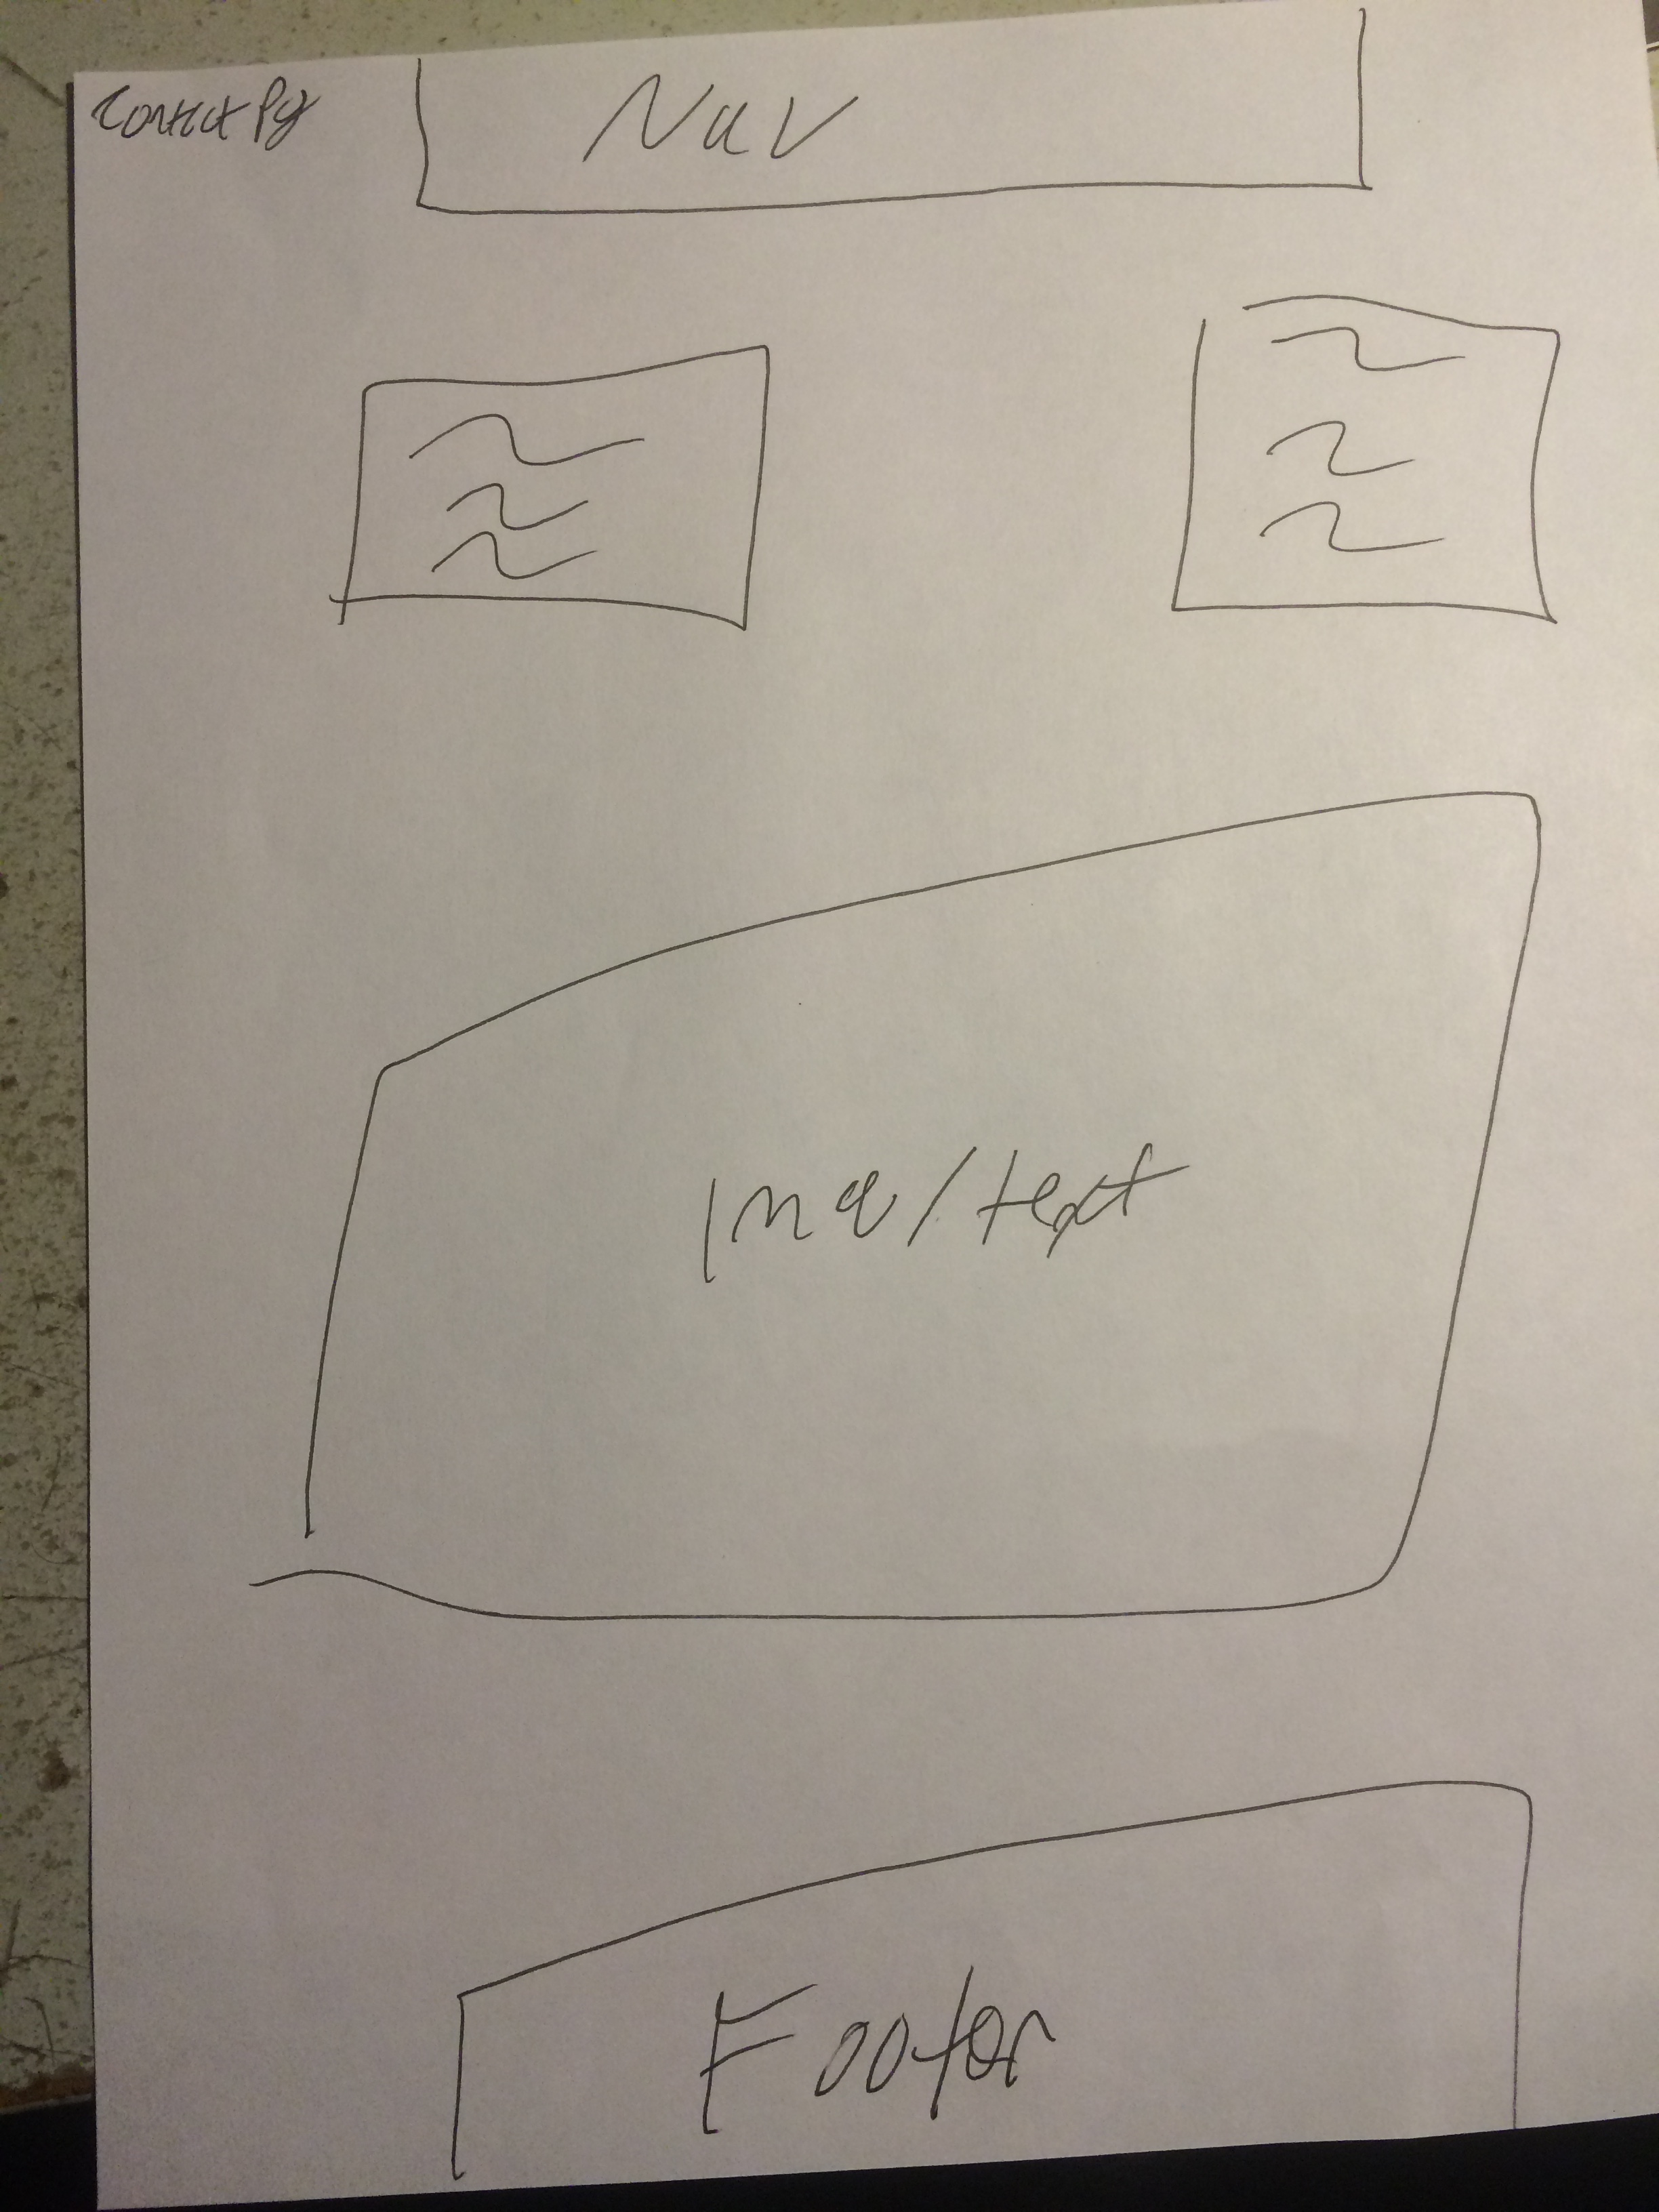 Contact Pg
Nav
Img/text
Footer